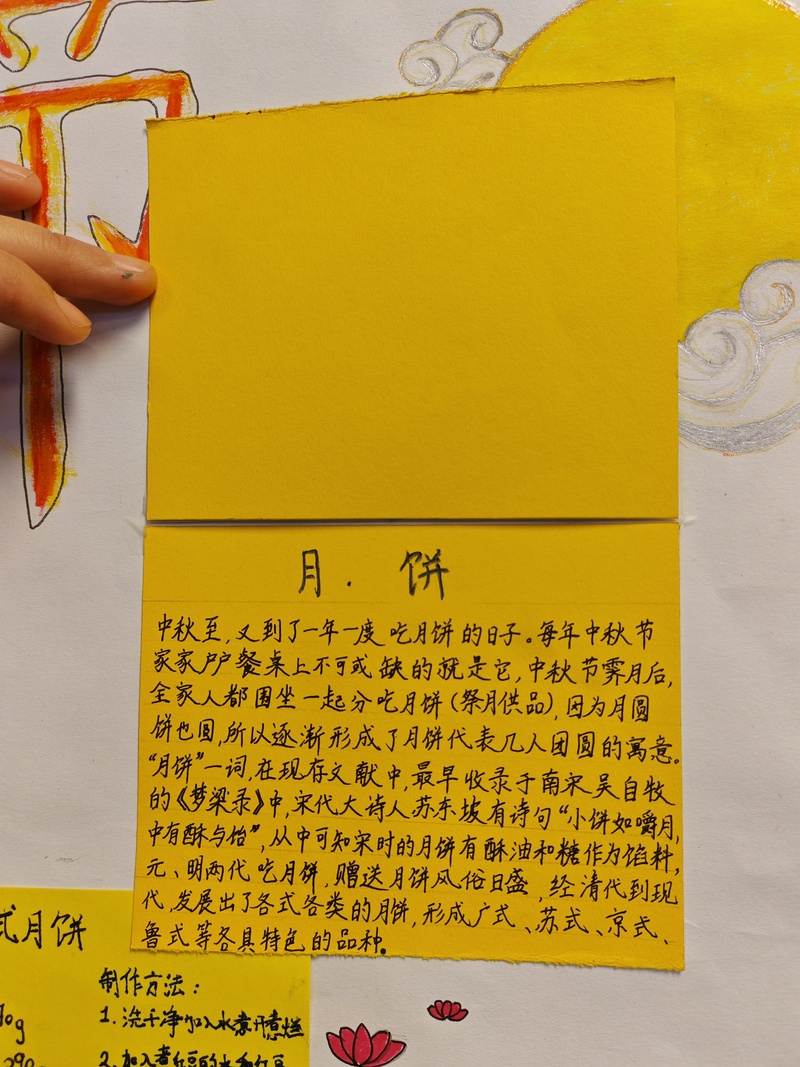 月．饼
中秋至，又到了一年一度吃月饼的日子。每年中秋节
家家户户餐桌上不可或缺的就是它，中秋节霁月后，
全家人都围坐一起分吃月饼（祭月供品），因为月圆
饼也圆，所以逐渐形成了月饼代表几人团圆的寓意。
“月饼”一词，在现存文献中，最早收录于南宋吴自牧
的《梦粱录》中，宋代大诗人苏东坡有诗句“小饼如嚼月，
中有酥与饴”，从中可知宋时的月饼有酥油和糖作为馅料，
元、明两代吃月饼，赠送月饼风俗日盛，经清代到现
代，发展出了各式各类的月饼，形成广式、苏式、京式、
鲁式等各具特色的品种。
式月饼
制作方法：
1.洗干净加入水煮开煮烂
2.加入煮红豆的水和红豆